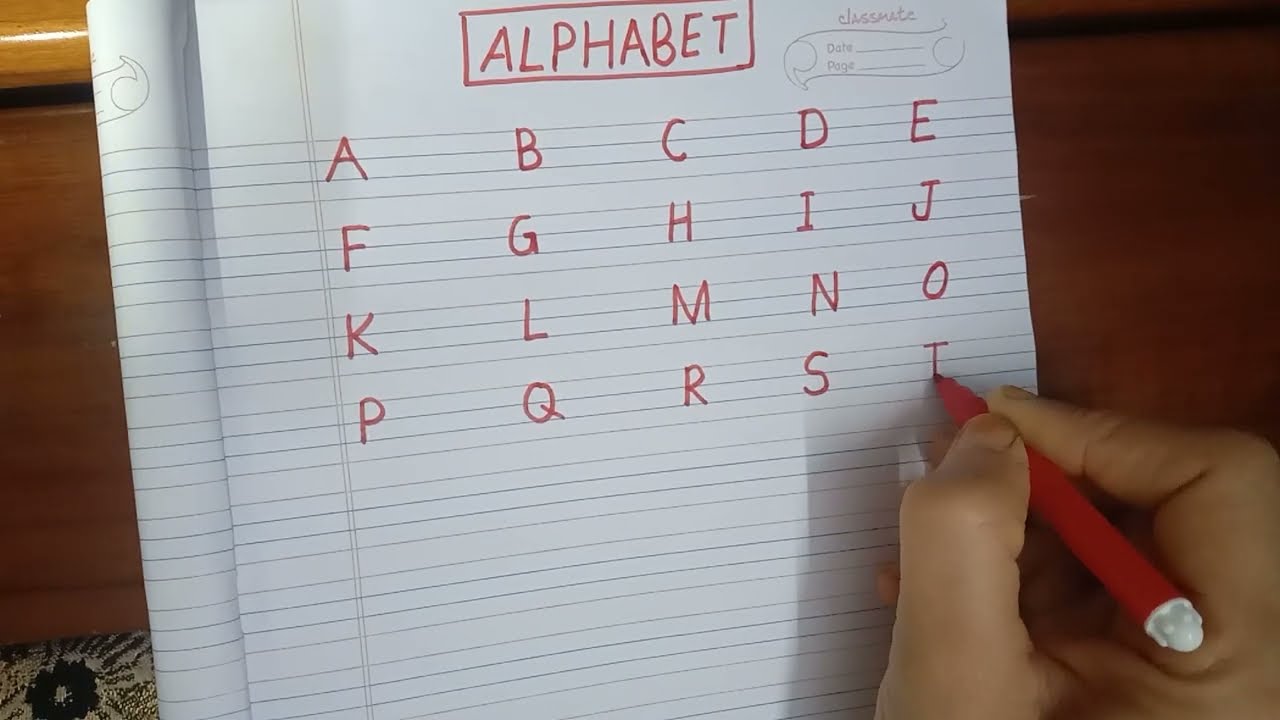 ALPHABET
classmate
Date
Page
A B C D E
F G H I J
K L M N O
P Q R S T